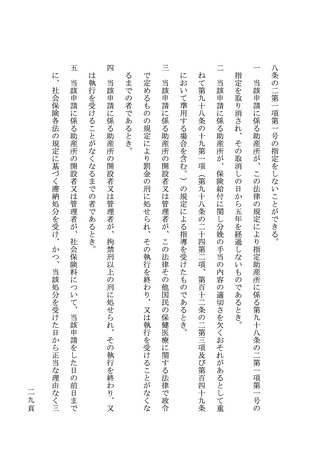 八条の二第一項第一号の指定をしないことができる。
一　当該申請に係る助産所が、この法律の規定により指定助産所に係る第九十八条の二第一項第一号の
指定を取り消され、その取消しの日から五年を経過しないものであるとき。
二　当該申請に係る助産所が、保険給付に関し分娩の手当の内容の適切さを欠くおそれがあるとして重
ねて第九十八条の十九第一項（第九十八条の二十四第二項、第百十二条の二第三項及び第百四十九条
において準用する場合を含む。）の規定による指導を受けたものであるとき。
三　当該申請に係る助産所の開設者又は管理者が、この法律その他国民の保健医療に関する法律で政令
で定めるものの規定により罰金の刑に処せられ、その執行を終わり、又は執行を受けることがなくな
るまでの者であるとき。
四　当該申請に係る助産所の開設者又は管理者が、拘禁刑以上の刑に処せられ、その執行を終わり、又
は執行を受けることがなくなるまでの者であるとき。
五　当該申請に係る助産所の開設者又は管理者が、社会保険料について、当該申請をした日の前日まで
に、社会保険各法の規定に基づく滞納処分を受け、かつ、当該処分を受けた日から正当な理由なく三
二九頁